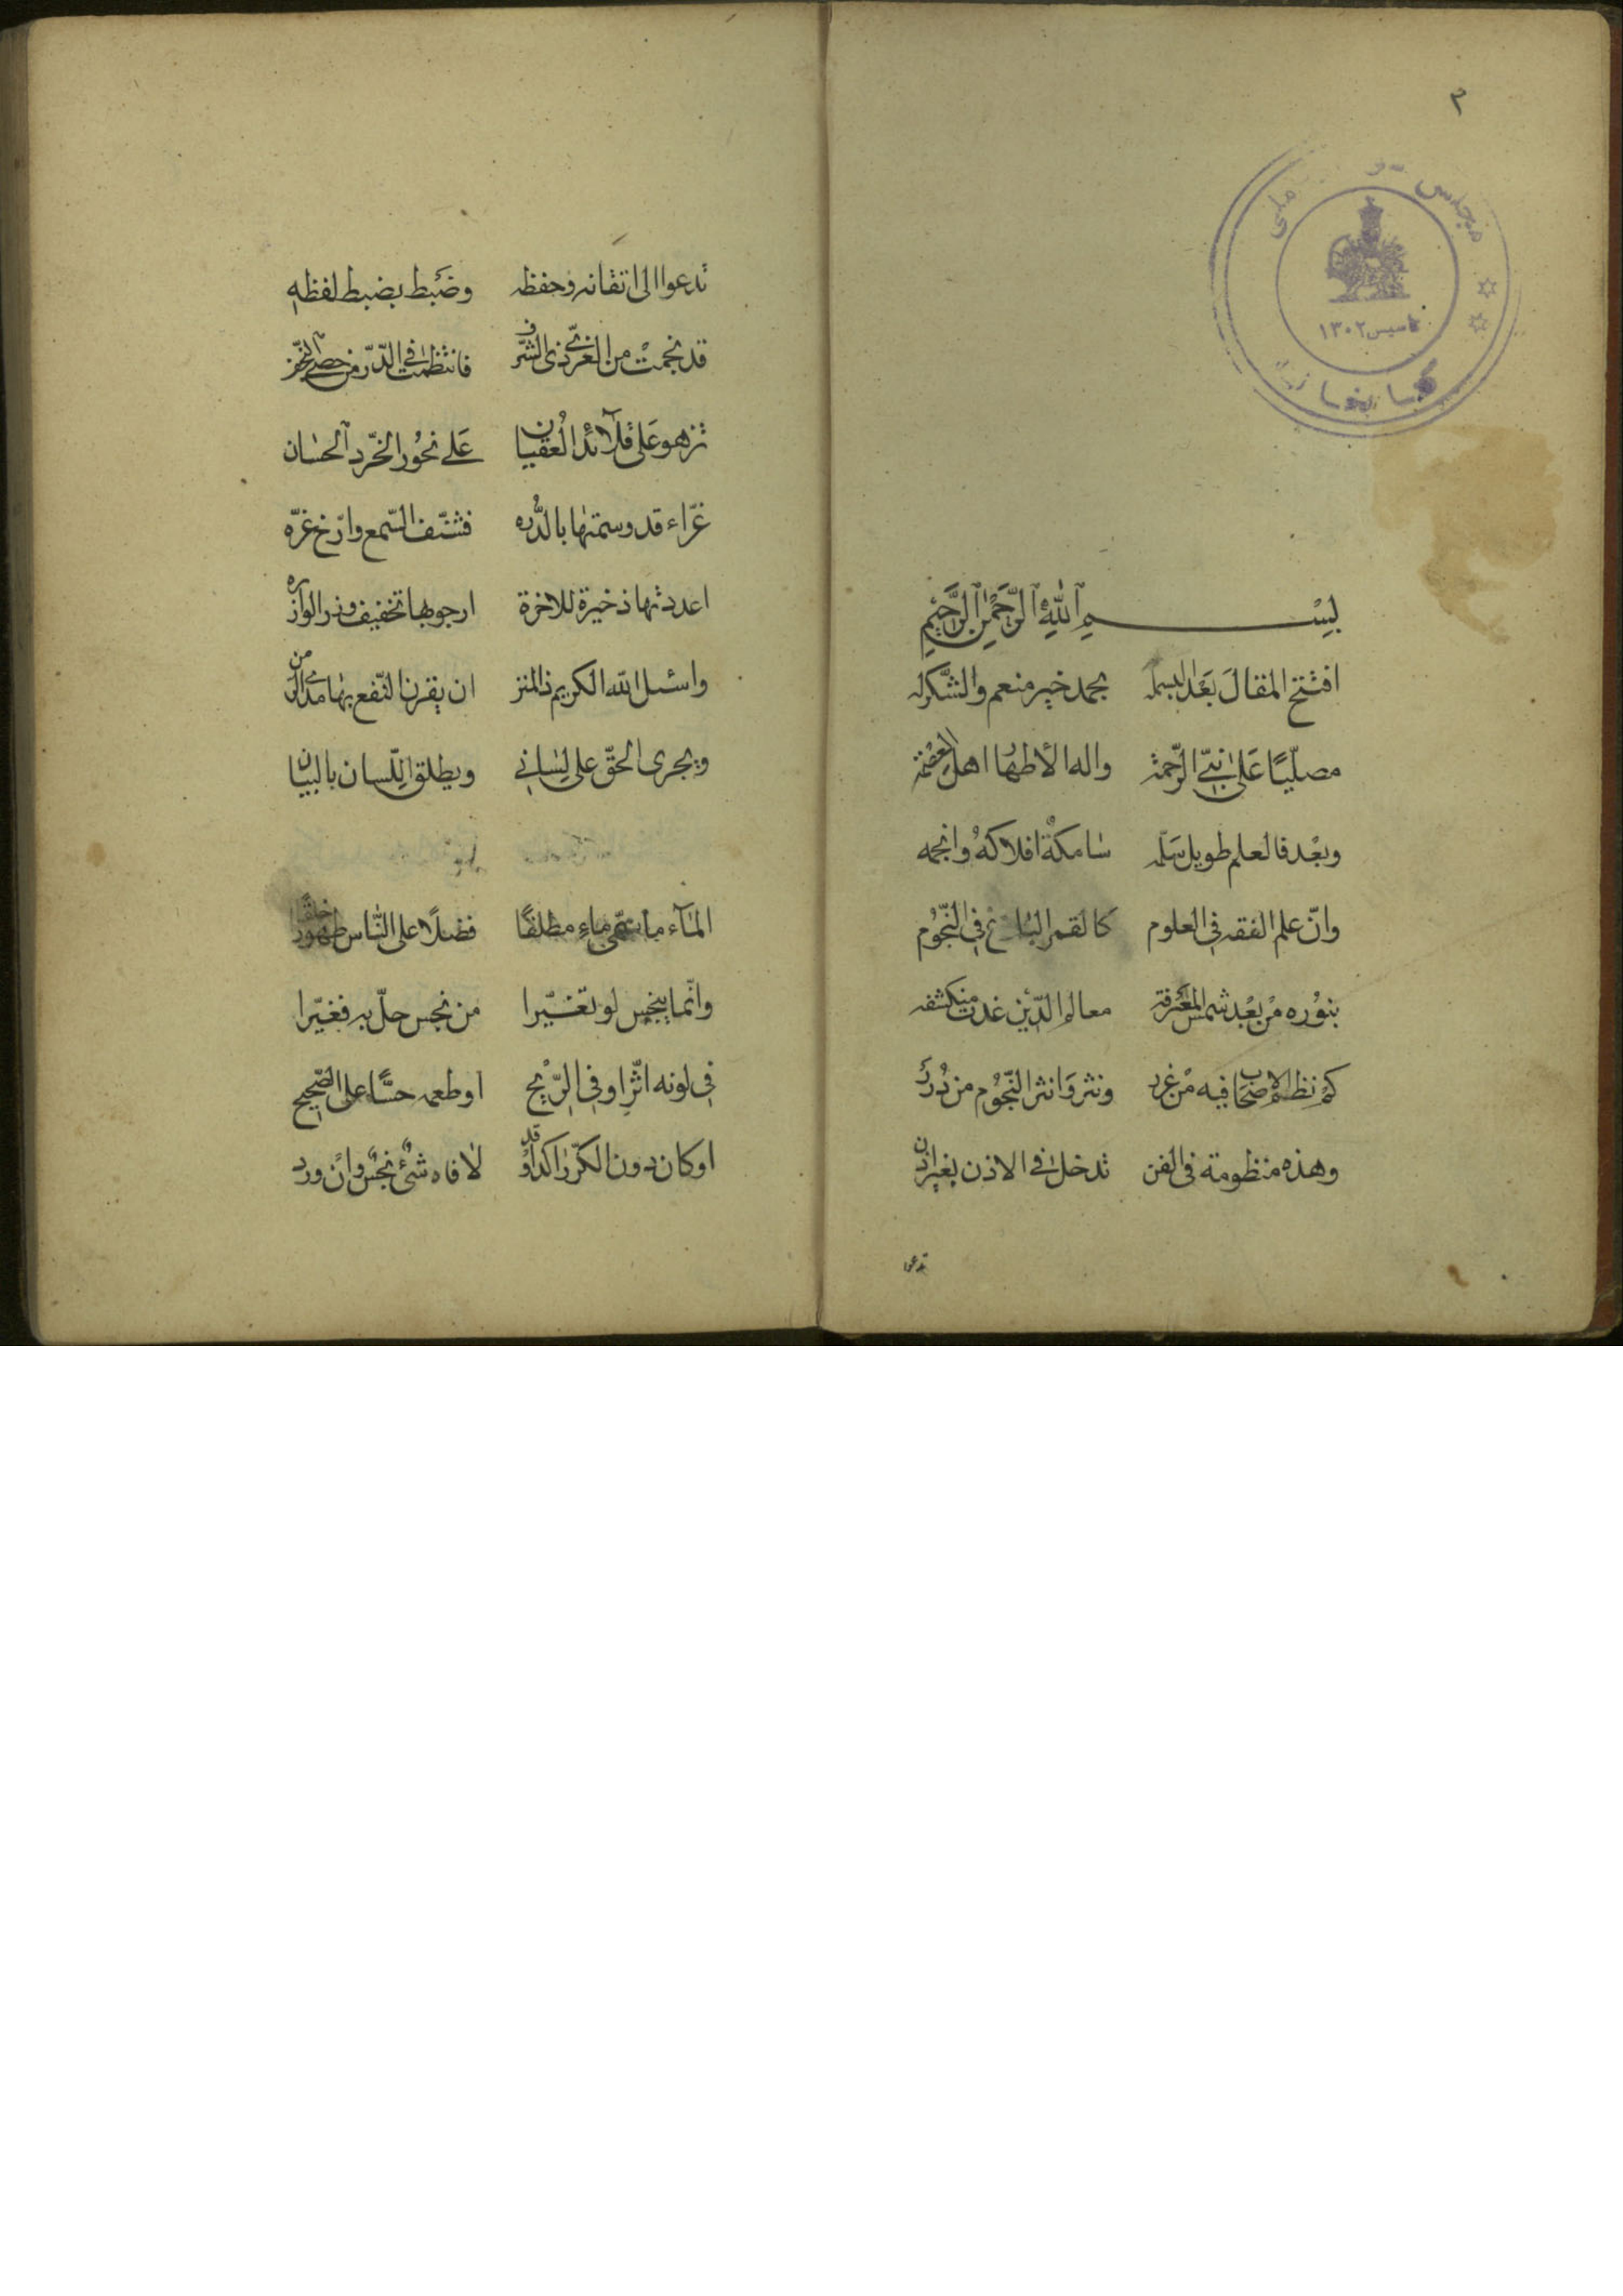 ٢
مجلس ملی
تاسیس ١٣٠٢
بِسْمِ اللّٰهِ الرَّحْمٰنِ الرَّحِيْمِ
افتتح المقالَ بَعْد البسمله بحمد خير منعم والشّكر له
مصلّيًا عَلىٰ نبيّ الرّحمة واله الأطهار اهل العصمة
وبعْد فالعلم طويل سَلّمه سٰامكة افلاكهُ وانجمه
وانّ علم الفقه فى العلوم كالقمر البٰازغ فى النّجُوم
بنوُره منْ بعْد شمس المعْرفة معالم الدّين غدت منكشفه
كمْ نظم الاصحاب فيه منْ غرر ونثروَا نثر النّجُوم من دُررَ
وهذه منظومة فى الفن تدخل فى الاذن بغير اذن
تدعو
تدعوا الى اتقانه وحفظه وضبَط بضبط لفظه
قد نجمتْ من الغرىّ ذى الشّرف فانتظمت فى الدّرّ من حصى النّجف
تزهو عَلى قلآئد الْعقيان عَلى نحُور الخّرد الحسٰان
غرّاء قد وسمتهٰا بالدُّره فشنّف السّمع وارّخ غرّه
اعددتها ذخيرة للاخرة ارجو بها تخفيف وذر الوازره
واسئل اللّه الكريم ذا المنن ان يقرن النّفع بهٰا مدى الزمن
ويجرى الحقّ على لسٰانى ويطلق اللّسان بالبيٰان
المٰآء ما سمّى ماءٍ مطلقًا فضلًا على النّاس طهورًا خلقًا
وانّما ينجس لو تغيّرا من نجس حلّ به فغيّرا
فى لونه اثّر او فى الرّيْح او طعمه حسًّا على الصّحيح
او كان دون الكرّ راكدًا وقد لاقاه شئٌ نجسٌ وانْ ورد